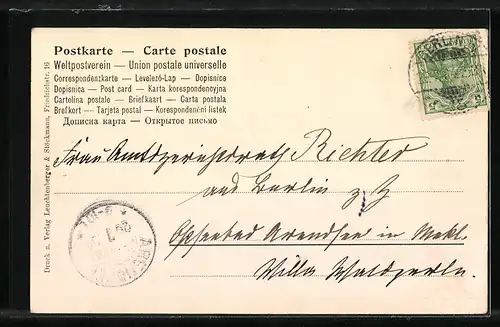 Postkarte — Carte postale
Weltpostverein — Union postale universelle
Correspondenzkarte — Levelező-Lap — Dopisnice
Dopisnica — Post card — Karta korespondencyjna
Cartolina postale — Briefkaart — Carta postala
Brefkort — Tarjeta postal — Korespondenční listek
Дописна карта — Открытое письмо
Frau Amtsgerichtsrath Richter
aus Berlin z. Z.
Ostseebad Arendsee in Mekl.
Villa Waldperle.
Druck u. Verlag Leuchtenberger & Stöckmann, Friedrichstr. 16
BERLIN